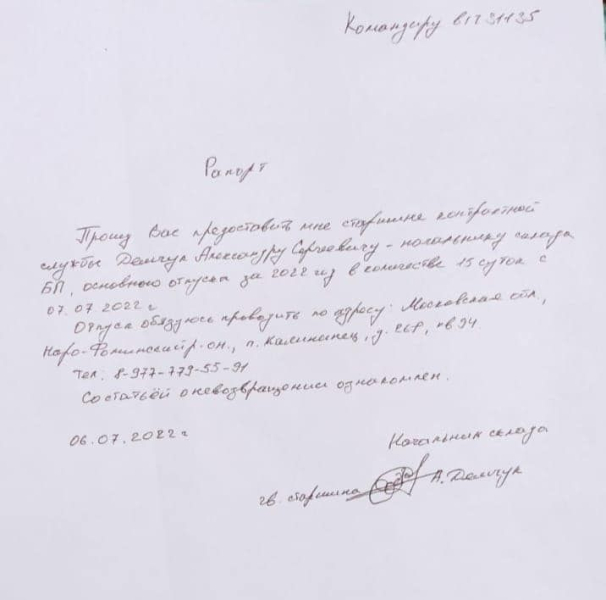 Командиру в/ч 31135
Рапорт
Прошу Вас предоставить мне старшине контрактной
службы Демчук Александру Сергеевичу - начальнику склада
БП, основного отпуска за 2022 из в количестве 15 суток с
07.07.2022 г
Отпуск обязуюсь проводить по адресу: Московская обл.,
Наро-Фоминский р-он., п. Калининец, д. 267, кв 94
Тел. 8-977-779-55-91
Со статьёй о невозвращении ознакомлен.
06.07.2022 г
Начальник склада
гв. старшина А. Демчук